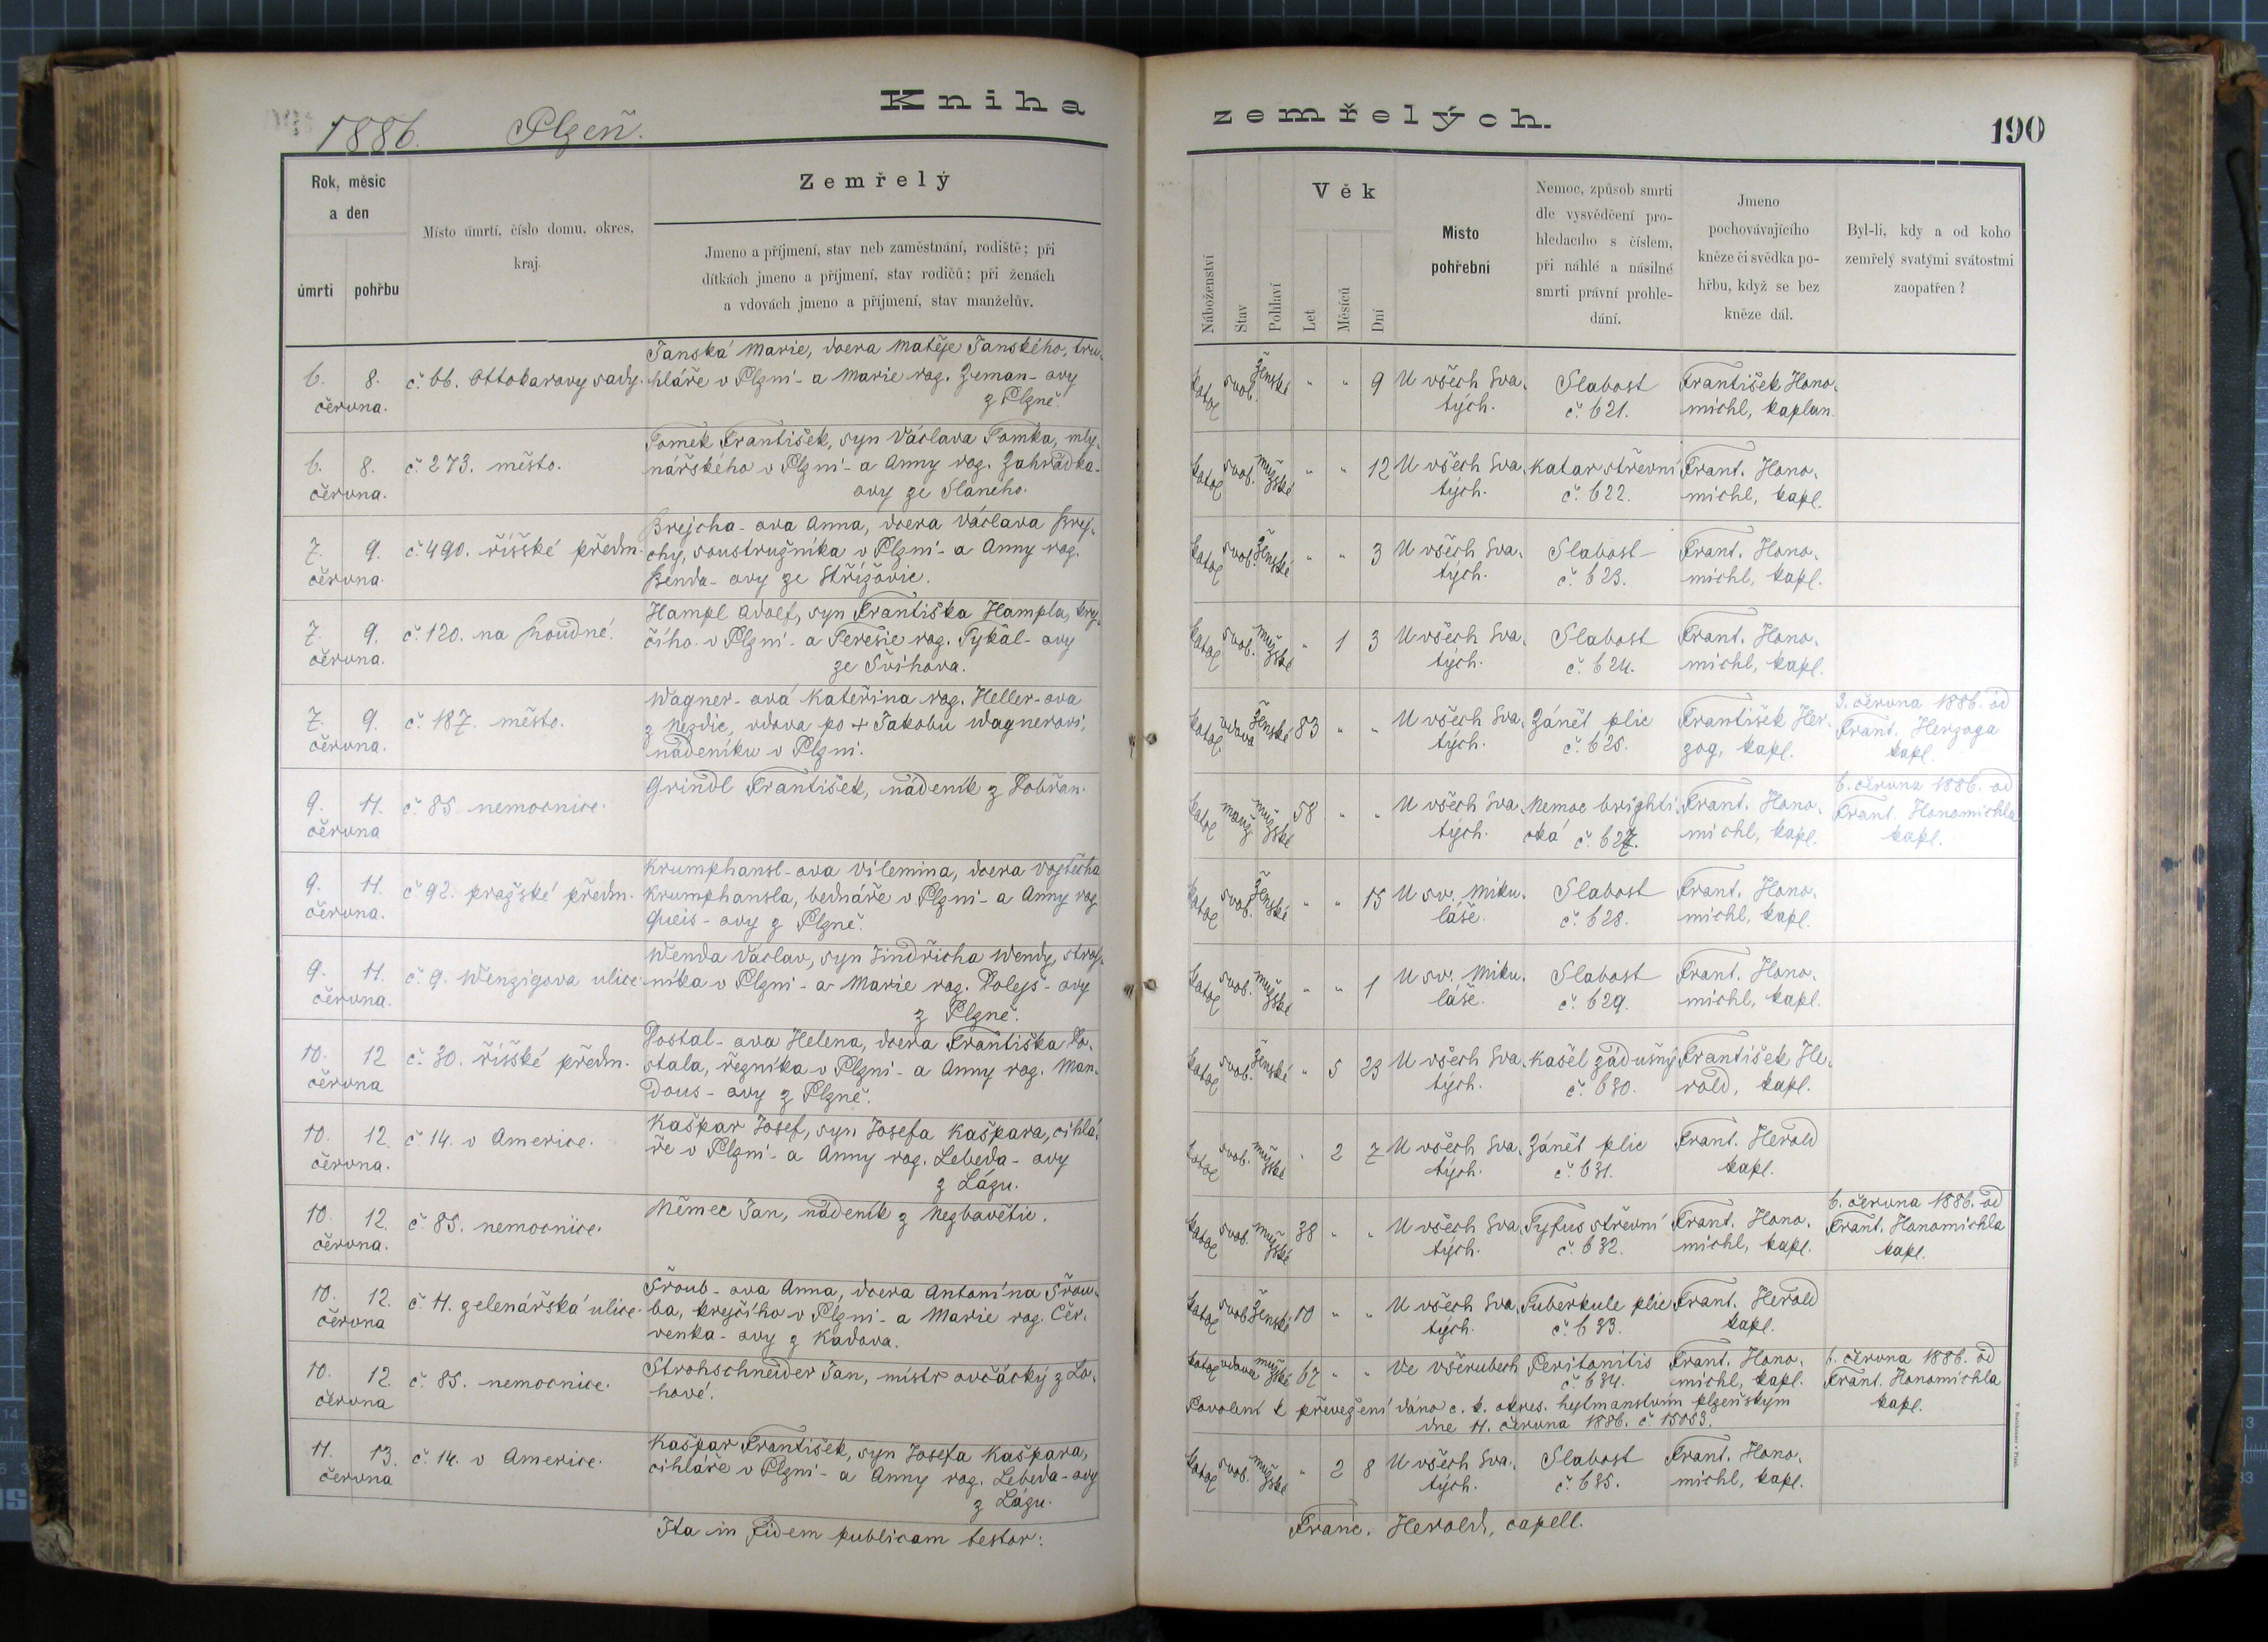 1886. Plzeň.
Kniha
zemřelých.
190
Rok, měsíc
a den
úmrtí
pohřbu
Místo úmrtí, číslo domu, okres,
kraj.
Zemřelý
Jmeno a příjmení, stav neb zaměstnání, rodiště; při
dítkách jmeno a příjmení, stav rodičů; při ženách
a vdovách jmeno a příjmení, stav manželův.
Náboženství
Stav
Pohlaví
Věk
Let
Měsíců
Dní
Místo
pohřební
Nemoc, způsob smrti
dle vysvědčení pro-
hledacího s číslem,
při náhlé a násilné
smrti právní prohle-
dání.
Jmeno
pochovávajícího
kněze či svědka po-
hřbu, když se bez
kněze dál.
Byl-li, kdy a od koho
zemřelý svatými svátostmi
zaopatřen?
6. 8.
června.
č. 66. Ottokarovy sady.
Janská Marie, dcera Matěje Janského, tru-
hláře v Plzni - a Marie roz. Zeman-ovy
z Plzně.
katol svob. ženské " " 9
U všech Sva-
tých.
Slabost
č. 621.
František Hono-
michl, kaplan.
6. 8.
června.
č. 273. město.
Tomek František, syn Václava Tomka, mly-
nářského v Plzni - a Anny roz. Zahrádka-
ovy ze Slaného.
katol svob. mužské " " 12
U všech Sva-
tých.
Katar střevní
č. 622.
Frant. Hono-
michl, kapl.
7. 9.
června.
č. 490. říšské předm.
Brejcha-ova Anna, dcera Václava Brej-
chy, soustružníka v Plzni - a Anny roz.
Benda-ovy ze Střížovic.
katol svob. ženské " " 3
U všech Sva-
tých.
Slabost
č. 623.
Frant. Hono-
michl, kapl.
7. 9.
června.
č. 120. na Roudné.
Hampl Adolf, syn Františka Hampla, krej-
čího v Plzni - a Terezie roz. Tykal-ovy
ze Švihova.
katol svob. mužské " 1 3
U všech Sva-
tých.
Slabost
č. 624.
Frant. Hono-
michl, kapl.
7. 9.
června.
č. 187. město.
Wagner-ová Kateřina roz. Heller-ova
z Nezdic, vdova po + Jakobu Wagnerovi,
nádeníku v Plzni.
katol. vdova ženské 83 " "
U všech Sva-
tých.
Zánět plic
č. 625.
František Her-
zog, kapl.
3. června 1886. od
Frant. Herzoga
kapl.
9. 11.
června
č. 85. nemocnice.
Grindl František, nádeník z Dobřan.
katol manž. mužské 58 " "
U všech Sva-
tých.
Nemoc brighti-
cká č. 627.
Frant. Hono-
michl, kapl.
6. června 1886. od
Frant. Honomichla
kapl.
9. 11.
června.
č. 92. pražské předm.
Krumphansl-ova Vilemina, dcera Vojtěcha
Krumphansla, bednáře v Plzni - a Anny roz.
Queis-ovy z Plzně.
katol svob. ženské " " 15
U sv. Miku-
láše.
Slabost
č. 628.
Frant. Hono-
michl, kapl.
9. 11.
června.
č. 9. Wenzigova ulice.
Wenda Václav, syn Jindřicha Wendy, stroj-
níka v Plzni - a Marie roz. Dolejš-ovy
z Plzně.
katol svob. mužské " " 1
U sv. Miku-
láše.
Slabost
č. 629.
Frant. Hono-
michl, kapl.
10. 12
června
č. 30. říšské předm.
Dostal-ova Helena, dcera Františka Do-
stala, řezníka v Plzni - a Anny roz. Man-
dous-ovy z Plzně.
katol svob. ženské " 5 23
U všech Sva-
tých.
Kašel zádušný
č. 630.
František He-
rold, kapl.
10. 12.
června.
č. 14. v Americe.
Kašpar Josef, syn Josefa Kašpara, cihlá-
ře v Plzni - a Anny roz. Lebeda-ovy
z Lázu.
katol svob. mužské " 2 7
U všech Sva-
tých.
Zánět plic
č. 631.
Frant. Herold
kapl.
10. 12.
června.
č. 85. nemocnice.
Němec Jan, nádeník z Nezbavětic.
katol svob. mužské 38 " "
U všech Sva-
tých.
Tyfus střevní
č. 632.
Frant. Hono-
michl, kapl.
6. června 1886. od
Frant. Honomichla
kapl.
10. 12.
června
č. 11. zelenářská ulice.
Šroub-ova Anna, dcera Antonína Šrou-
ba, krejčího v Plzni - a Marie roz. Čer-
venka-ovy z Kadova.
katol svob ženské 10 " "
U všech Sva-
tých.
Tuberkule plic
č. 633.
Frant. Herold
kapl.
10. 12.
června
č. 85. nemocnice.
Strohschneider Jan, mistr ovčácký z Lo-
hové.
katol vdova mužské 67 " "
Ve Všerubech
Peritonitis
č. 634.
Frant. Hono-
michl, kapl.
6. června 1886. od
Frant. Honomichla
kapl.
Povolení k převezení dáno c. k. okres. hejtmanstvím plzeňským
dne 11. června 1886. č. 15053.
11. 13.
června
č. 14. v Americe.
Kašpar František, syn Josefa Kašpara,
cihláře v Plzni - a Anny roz. Lebeda-ovy
z Lázu.
katol svob. mužské " 2 8
U všech Sva-
tých.
Slabost
č. 635.
Frant. Hono-
michl, kapl.
Ita in fidem publicam testor:
Franc. Herold, capell.